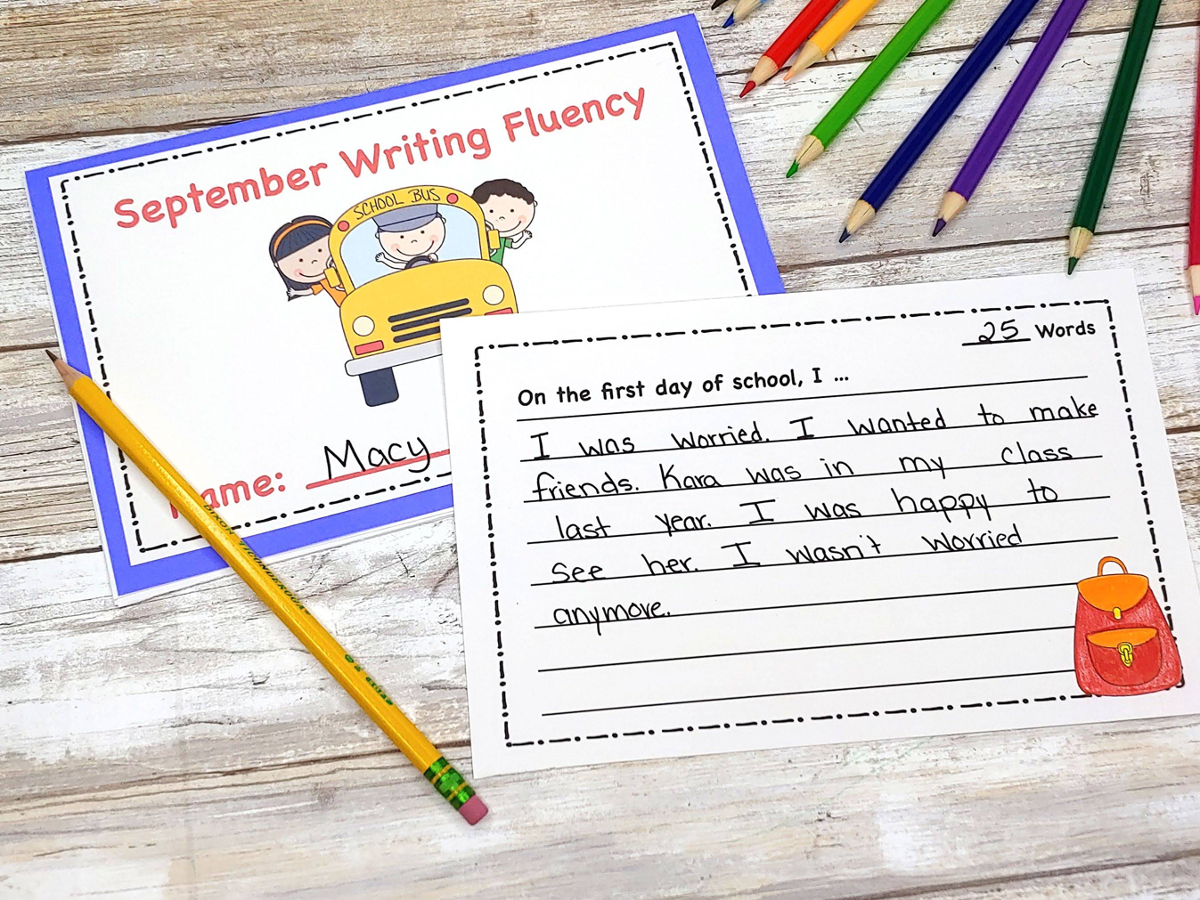 September Writing Fluency
SCHOOL BUS
Name: Macy
25 Words
On the first day of school, I ...
I was worried. I wanted to make
friends. Kara was in my class
last year. I was happy to
see her. I wasn't worried
anymore.